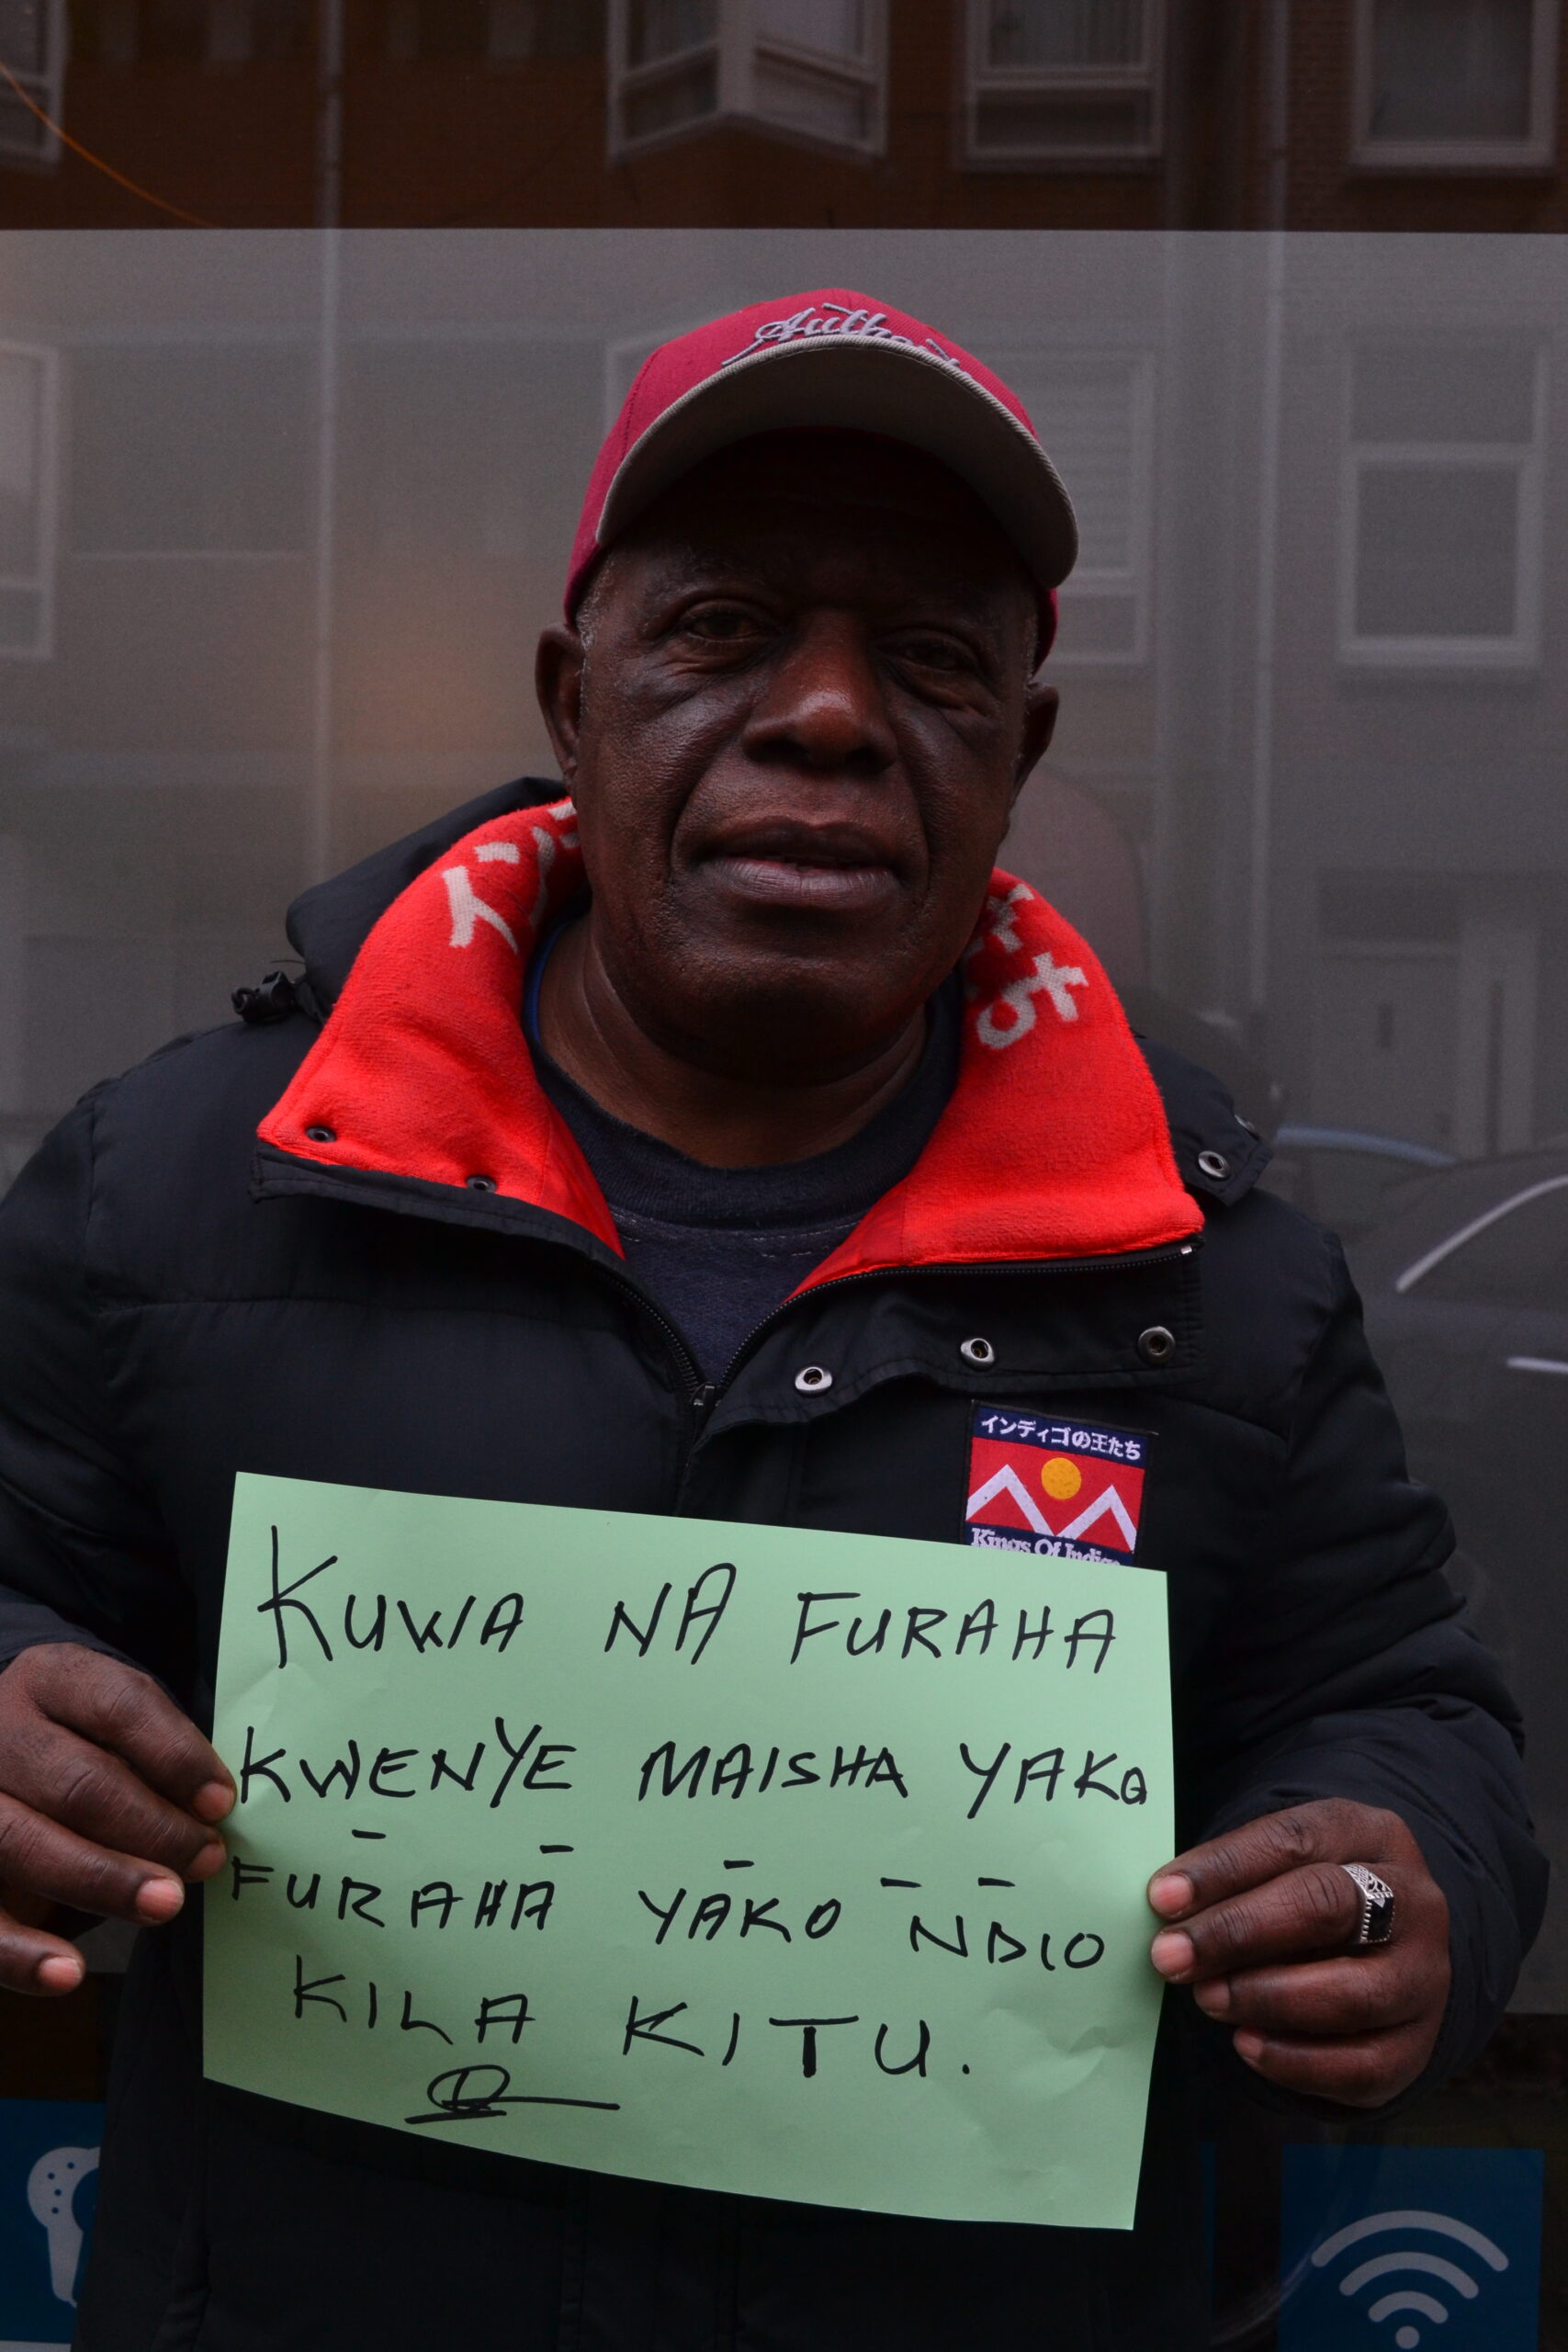 インディゴの王たち
Kings Of Indigo
KUWA NA FURAHA
KWENYE MAISHA YAKO
FURAHA YAKO NDIO
KILA KITU.